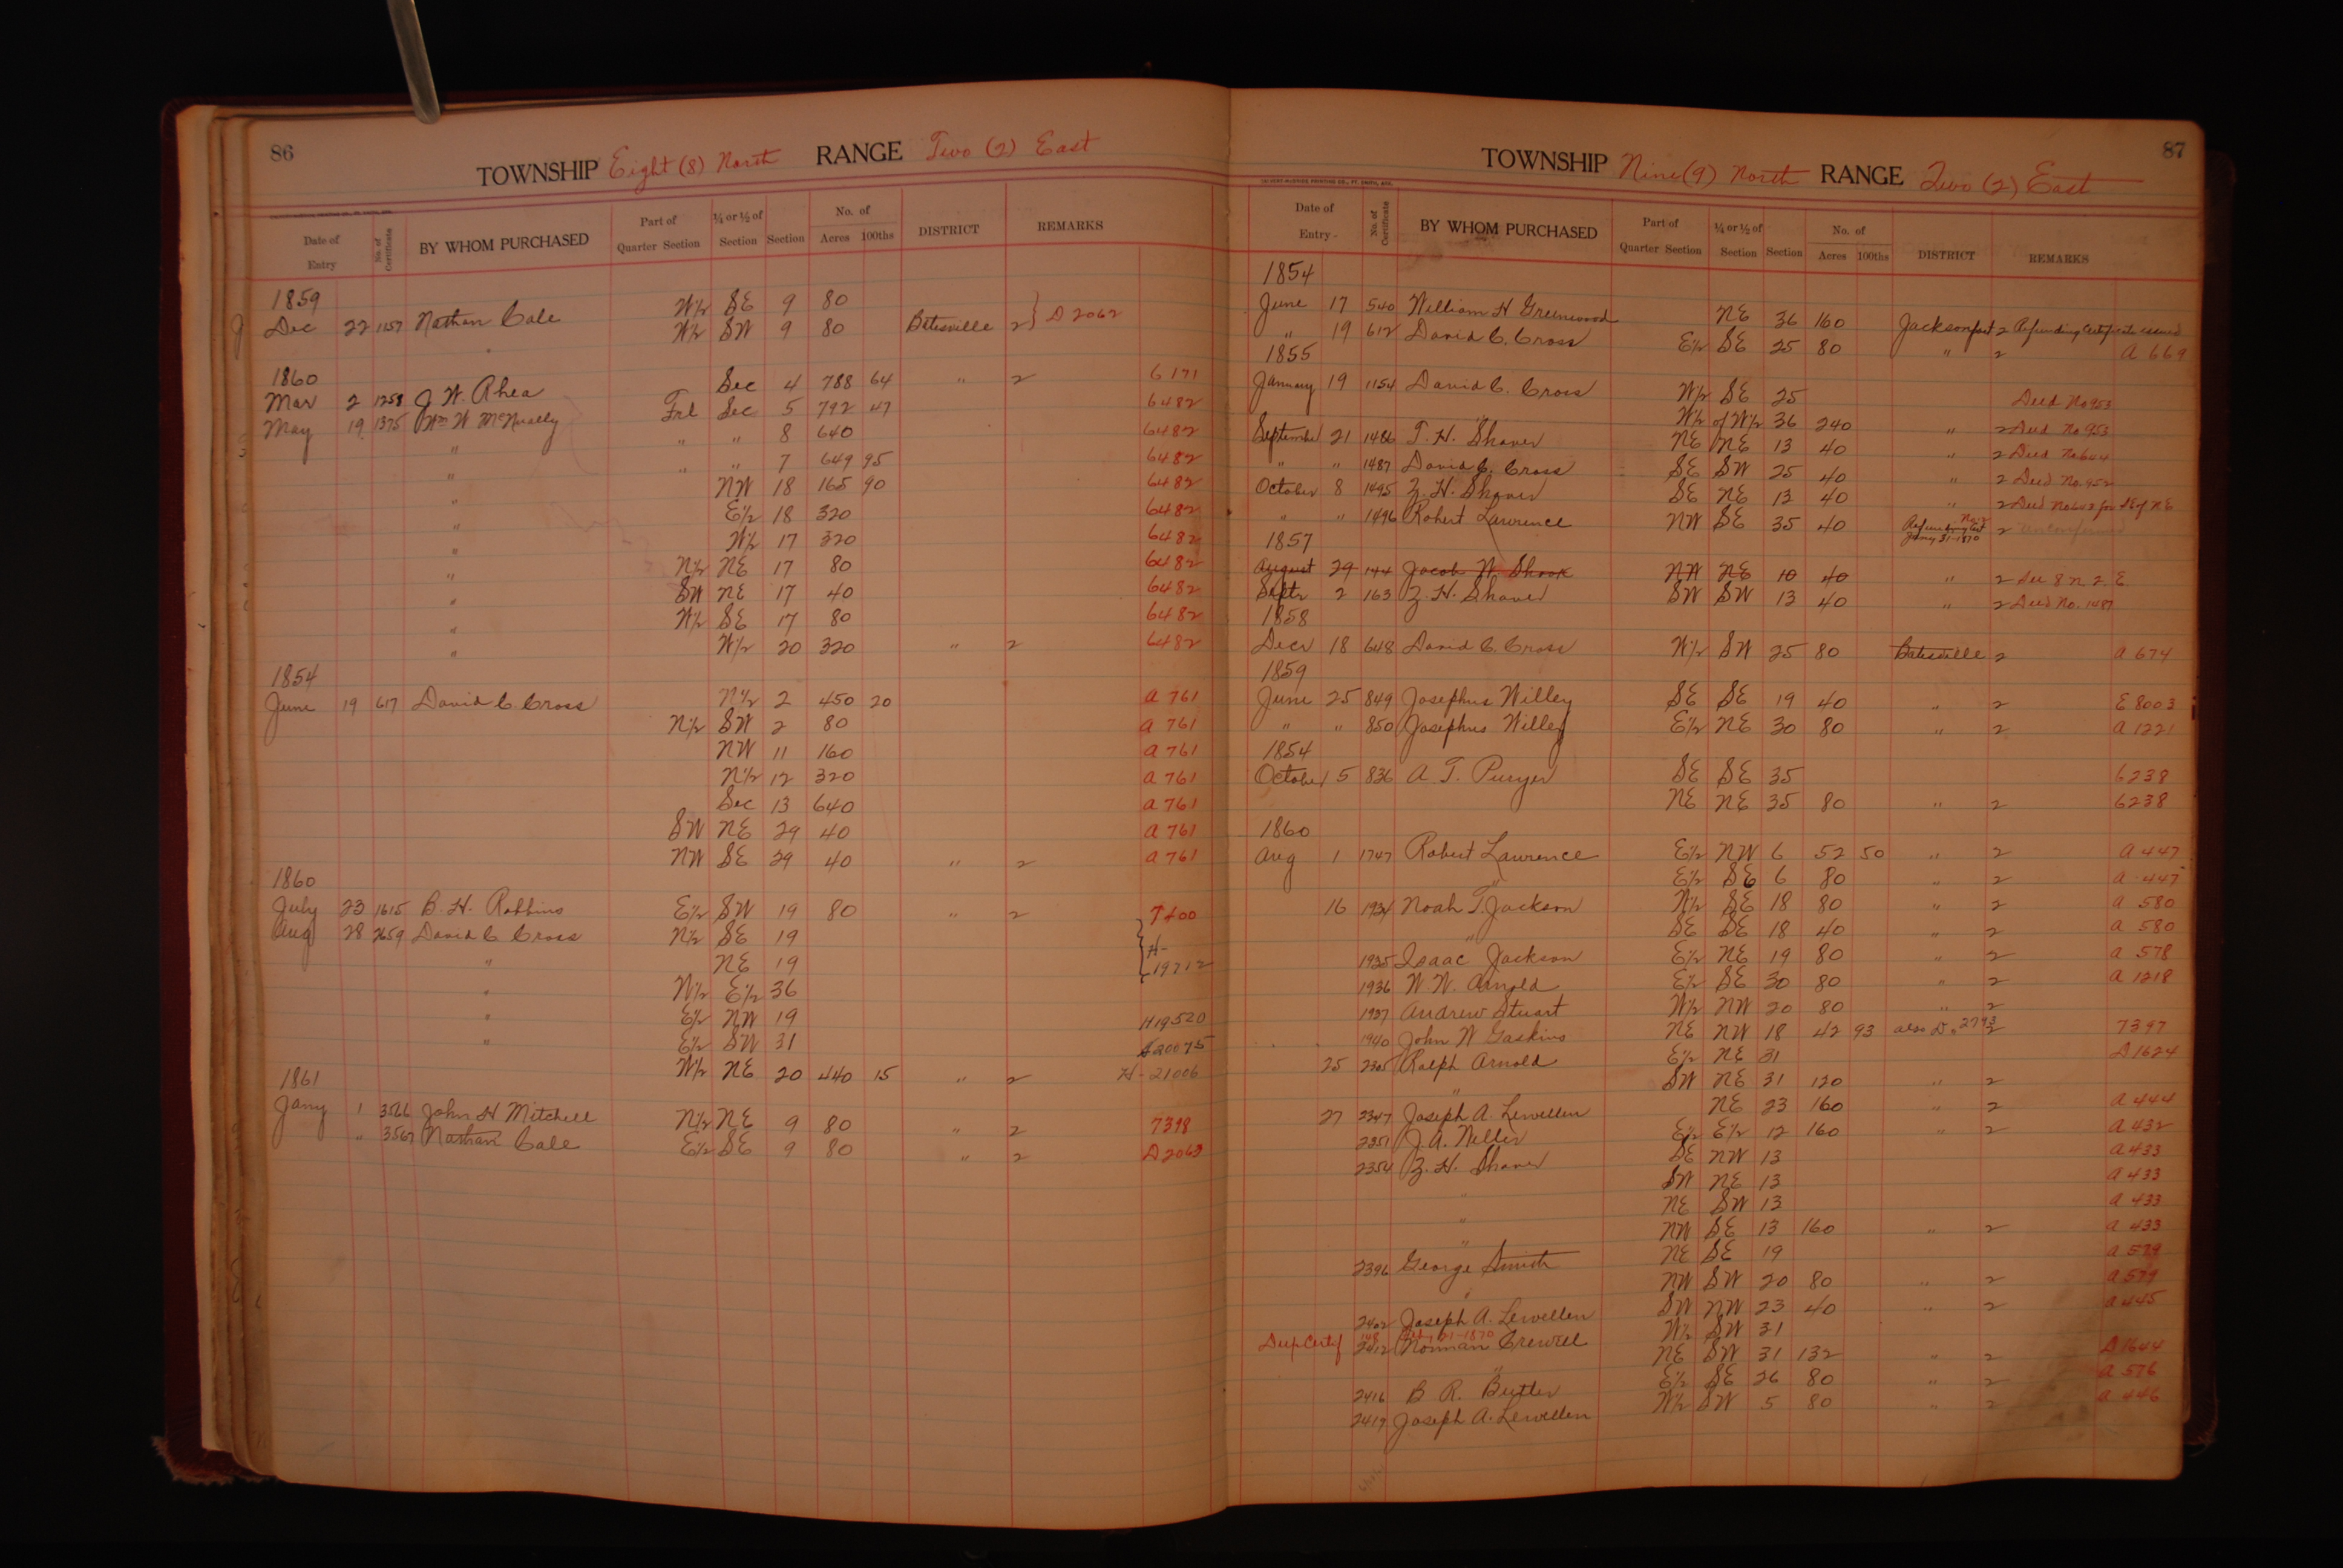 86
TOWNSHIP Eight (8) North RANGE Two (2) East
Date of Entry No. of Certificate BY WHOM PURCHASED Part of Quarter Section ¼ or ½ of Section Section No. of Acres 100ths DISTRICT REMARKS
1859
Dec 22 1157 Nathan Cale W½ SE 9 80
W½ SW 9 80 Batesville 2 D 2062
1860
Mar 2 1258 J W. Rhea Sec 4 788 64 " 2 6171
May 19 1375 Wm W McNually Frl Sec 5 792 47 6482
" " " 8 640 6482
" " " 7 649 95 6482
" NW 18 165 90 6482
" E½ 18 320 6482
" W½ 17 320 6482
" N½ NE 17 80 6482
" SW NE 17 40 6482
" W½ SE 17 80 6482
" W½ 20 320 " 2 6482
1854
June 19 617 David C. Cross N½ 2 450 20 a 761
N½ SW 2 80 a 761
NW 11 160 a 761
N½ 12 320 a 761
Sec 13 640 a 761
SW NE 29 40 a 761
NW SE 29 40 " 2 a 761
1860
July 23 1615 B. H. Robbins E½ SW 19 80 " 2 7400
Aug 28 2659 David C Cross N½ SE 19 H-
" NE 19 19712
" W½ E½ 36
" E½ NW 19 H19520
" E½ SW 31 20075
W½ NE 20 440 15 " 2 H-21006
1861
Jany 1 3566 John H Mitchell N½ NE 9 80 " 2 7398
" 3567 Nathan Cale E½ SE 9 80 " 2 D2063
87
TOWNSHIP Nine (9) North RANGE Two (2) East
CALVERT-McBRIDE PRINTING CO., FT. SMITH, ARK.
Date of Entry No. of Certificate BY WHOM PURCHASED Part of Quarter Section ¼ or ½ of Section Section No. of Acres 100ths DISTRICT REMARKS
1854
June 17 540 William H Greenwood NE 36 160 Jacksonport 2 Refunding Certificate issued
" 19 612 David C. Cross E½ SE 25 80 " 2 a 669
1855
January 19 1154 David C. Cross W½ SE 25 Deed No 953
W½ of W½ 36 240 " 2 Deed No 953
September 21 1486 T. H. Shaver NE NE 13 40 " 2 Deed No 644
" " 1487 David C. Cross SE SW 25 40 " 2 Deed No. 952
October 8 1495 Z. H. Shaver SE NE 13 40 " 2 Deed No 643 for SE of NE
" " 1496 Robert Lawrence NW SE 35 40 Refunding Cert Jany 31-1870 2
1857
August 29 144 Jacob W Shook NW NE 10 40 " 2 See 8 N 2 E
Septr 2 163 Z. H. Shaver SW SW 13 40 " 2 Deed No. 1487
1858
Decr 18 648 David C. Cross W½ SW 25 80 Batesville 2 a 674
1859
June 25 849 Josephus Willey SE SE 19 40 " 2 E 8003
" " 850 Josephus Willey E½ NE 30 80 " 2 a 1221
1854
October 5 836 A. T. Puryer SE SE 35 6238
NE NE 35 80 " 2 6238
1860
Aug 1 1747 Robert Lawrence E½ NW 6 52 50 " 2 a 447
" E½ SE 6 80 " 2 a 447
16 1934 Noah T. Jackson W½ SE 18 80 " 2 a 580
" SE SE 18 40 " 2 a 580
1935 Isaac Jackson E½ NE 19 80 " 2 a 578
1936 W. W. Arnold E½ SE 30 80 " 2 a 1218
1937 Andrew Stuart W½ NW 20 80 " 2
1940 John W Gaskins NE NW 18 42 93 also D. 2793 2 7397
25 2305 Ralph Arnold E½ NE 31 D 1624
" SW NE 31 120 " 2
27 2347 Joseph A. Lewellen NE 23 160 " 2 a 444
2351 J. A. Weller E½ E½ 12 160 " 2 a 432
2354 Z. H. Shaver SE NW 13 a 433
" SW NE 13 a 433
" NE SW 13 a 433
" NW SE 13 160 " 2 a 433
2396 George Smith NE SE 19 a 579
" NW SW 20 80 " 2 a 579
2402 Joseph A. Lewellen SW NW 23 40 " 2 a 445
Dup Certif 148 21-1870
2412 Norman Crewell W½ SW 31
" NE SW 31 132 " 2 D 1644
2416 B R. Butler E½ SE 26 80 " 2 a 576
2419 Joseph A. Lewellen W½ SW 5 80 " 2 a 446